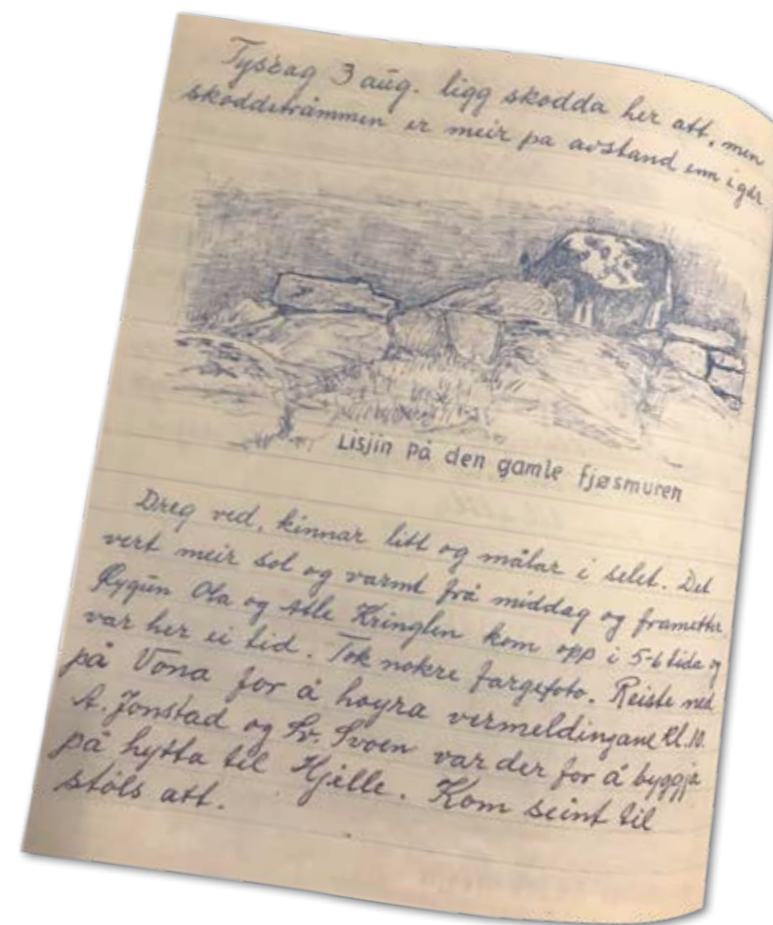 Tysdag 3 aug. ligg skodda her att, men
skoddetråmmen er meir på avstand enn igår.
Lisjin på den gamle fjøsmuren
Dreg ved, kinnar litt og målar i selet. Det
vert meir sol og varmt frå middag og frametter
Øygûn Ola og Atle Kringlen kom opp i 5-6 tida og
var her ei tid. Tok nokre fargefoto. Reiste ned
på Vona for å høyra vermeldingane kl. 10.
A. Jonstad og Sv. Svoen var der for å byggja
på hytta til Hjelle. Kom seint til
støls att.